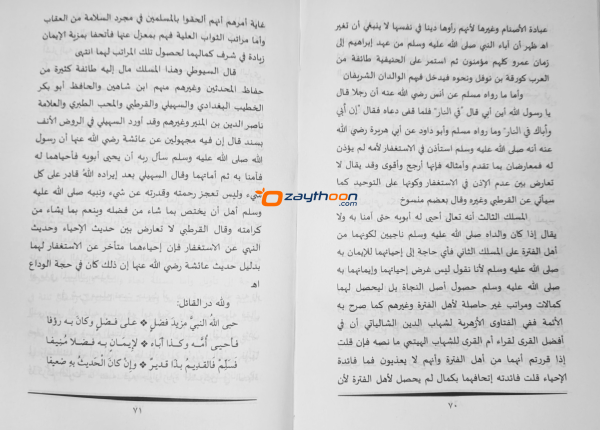 عبادة الأصنام وغيرها لأنهم رأوها دينا في نفسها لا ينبغي أن تغير
اهـ ظهر أن آباء النبي صلى الله عليه وسلم من عهد إبراهيم إلى
زمان عمرو كلهم مؤمنون ثم استمر على الحنيفية طائفة من
العرب كورقة بن نوفل ونحوه فيدخل فيهم الوالدان الشريفان
وأما ما رواه مسلم عن أنس رضي الله عنه أن رجلا قال
يا رسول الله أين أبي قال "في النار" فلما قفى دعاه فقال "إن أبي
وأباك في النار" وما رواه مسلم وأبو داود عن أبي هريرة رضي الله
عنه أنه صلى الله عليه وسلم استأذن في الاستغفار لأمه لم يؤذن
له فمعارضان بما تقدم وأمثاله فإنها أرجح وأقوى وقد يقال لا
تعارض بين عدم الإذن في الاستغفار وكونها على التوحيد كما
سيأتي عن القرطبي وغيره وقال بعضهم منسوخ
المسلك الثالث أنه تعالى أحيى له أبويه حتى آمنا به ولا
يقال إذا كان والداه صلى الله عليه وسلم ناجيين لكونهما من
أهل الفترة على المسلك الثاني فأي حاجة إلى إحيائهما للإيمان به
صلى الله عليه وسلم لأنا نقول ليس غرض إحيائهما وإيمانهما به
صلى الله عليه وسلم حصول أصل النجاة بل ليحصل لهما
كمالات ومراتب غير حاصلة لأهل الفترة وغيرهم كما صرح به
الأئمة ففي الفتاوى الأزهرية لشهاب الدين الشالياتي أن في
أفضل القرى لقراء أم القرى للشهاب الهيتمي ما نصه فإن قلت
إذا قررتم أنهما من أهل الفترة وأنهم لا يعذبون فما فائدة
الإحياء قلت فائدته إتحافهما بكمال لم يحصل لأهل الفترة لأن
٧٠
غاية أمرهم أنهم ألحقوا بالمسلمين في مجرد السلامة من العقاب
وأما مراتب الثواب العلية فهم بمعزل عنها فأتحفا بمزية الإيمان
زيادة في شرف كمالهما لحصول تلك المراتب لهما انتهى
قال السيوطي وهذا المسلك مال إليه طائفة كثيرة من
حفاظ المحدثين وغيرهم منهم ابن شاهين والحافظ أبو بكر
الخطيب البغدادي والسهيلي والقرطبي والمحب الطبري والعلامة
ناصر الدين بن المنير وغيرهم وقد أورد السهيلي في الروض الأنف
بسند قال إن فيه مجهولين عن عائشة رضي الله عنها أن رسول
الله صلى الله عليه وسلم سأل ربه أن يحيي أبويه فأحياهما له
فآمنا به ثم أماتهما وقال السهيلي بعد إيراده الله قادر على كل
شيء وليس تعجز رحمته وقدرته عن شيء ونبيه صلى الله عليه
وسلم أهل أن يختص بما شاء من فضله وينعم بما يشاء من
كرامته وقال القرطبي لا تعارض بين حديث الإحياء وحديث
النهي عن الاستغفار فإن إحياءهما متأخر عن الاستغفار لهما
بدليل حديث عائشة رضي الله عنها إن ذلك كان في حجة الوداع
اهـ
ولله در القائل:
حبى الله النبي مزيد فضل ❖ على فضل وكان به رؤفا
فأحيى أمه وكذا أباه ❖ لإيمان به فضلا منيفا
فسلم فالقديم بذا قدير ❖ وإن كان الحديث به ضعيفا
٧١
ozaythoon
.com